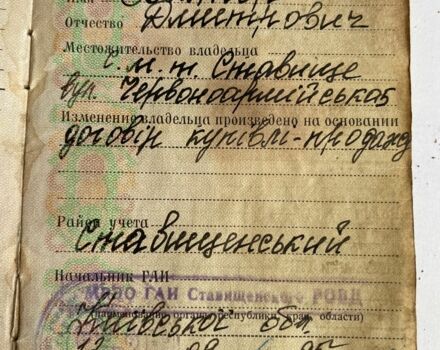 Отчество Дмитрович
Местожительство владельца
с.м.т Ставище
вул. Червоноармійська 5
Изменение владельца произведено на основании
договір купівлі-продажу
Район учета
Ставищенський
Начальник ГАИ
МРЭО ГАИ Ставищенского РОВД
Київської обл.
(наименование органа, республики, края, области)